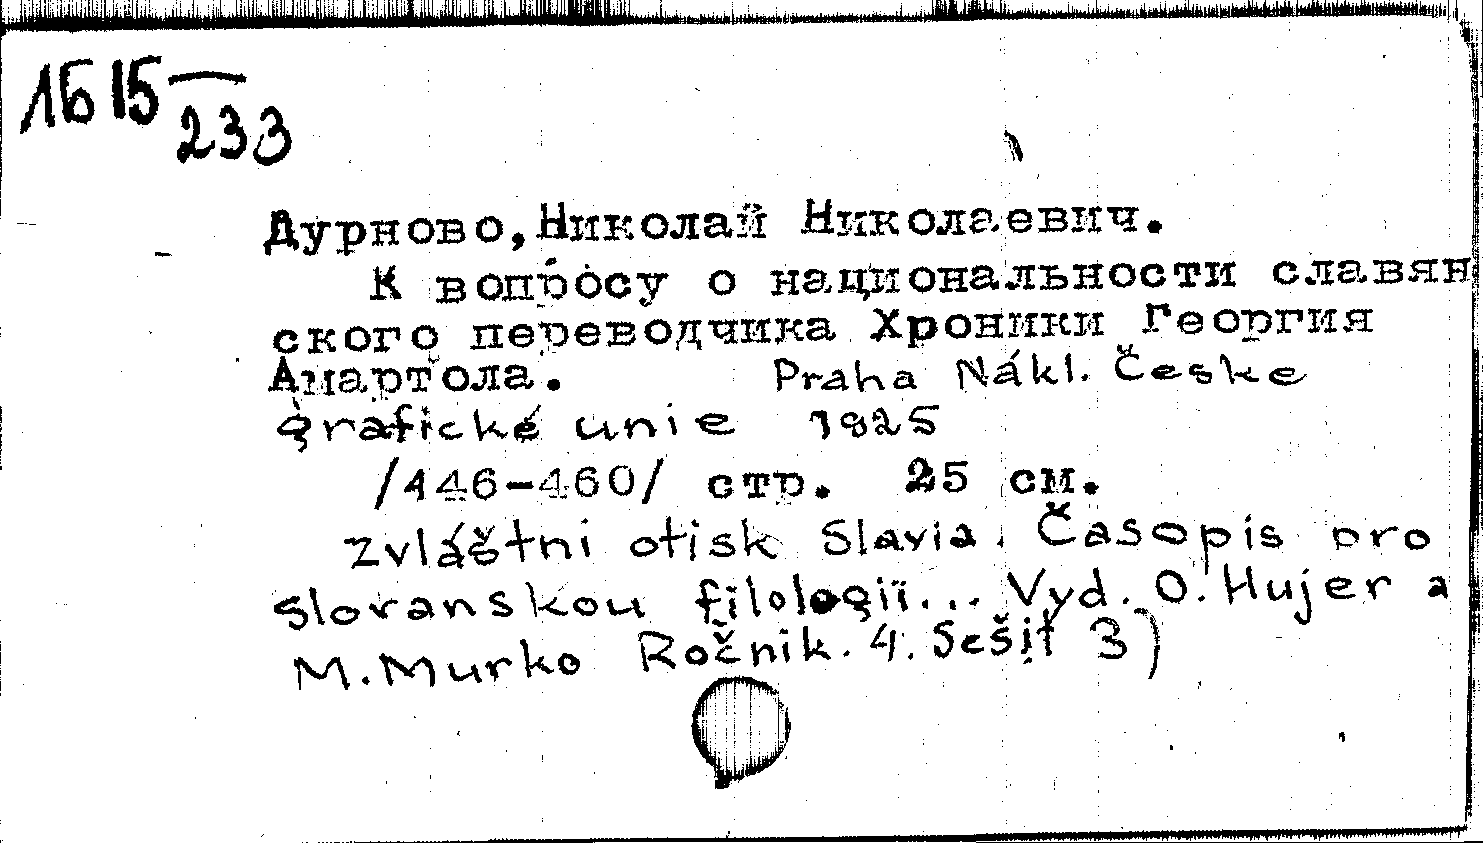 1Б 15—
233
Дурново, Николай Николаевич.
К вопросу о национальности славян
ского переводчика Хроники Георгия
Амартола. Praha Nákl. České
grafické unie 1925
/446-460/ стр. 25 см.
zvláštni otisk Slavia. Časopis pro
slovanskou filologii... Vyd. O. Hujer a
M. Murko Ročnik. 4. Sešit 3)